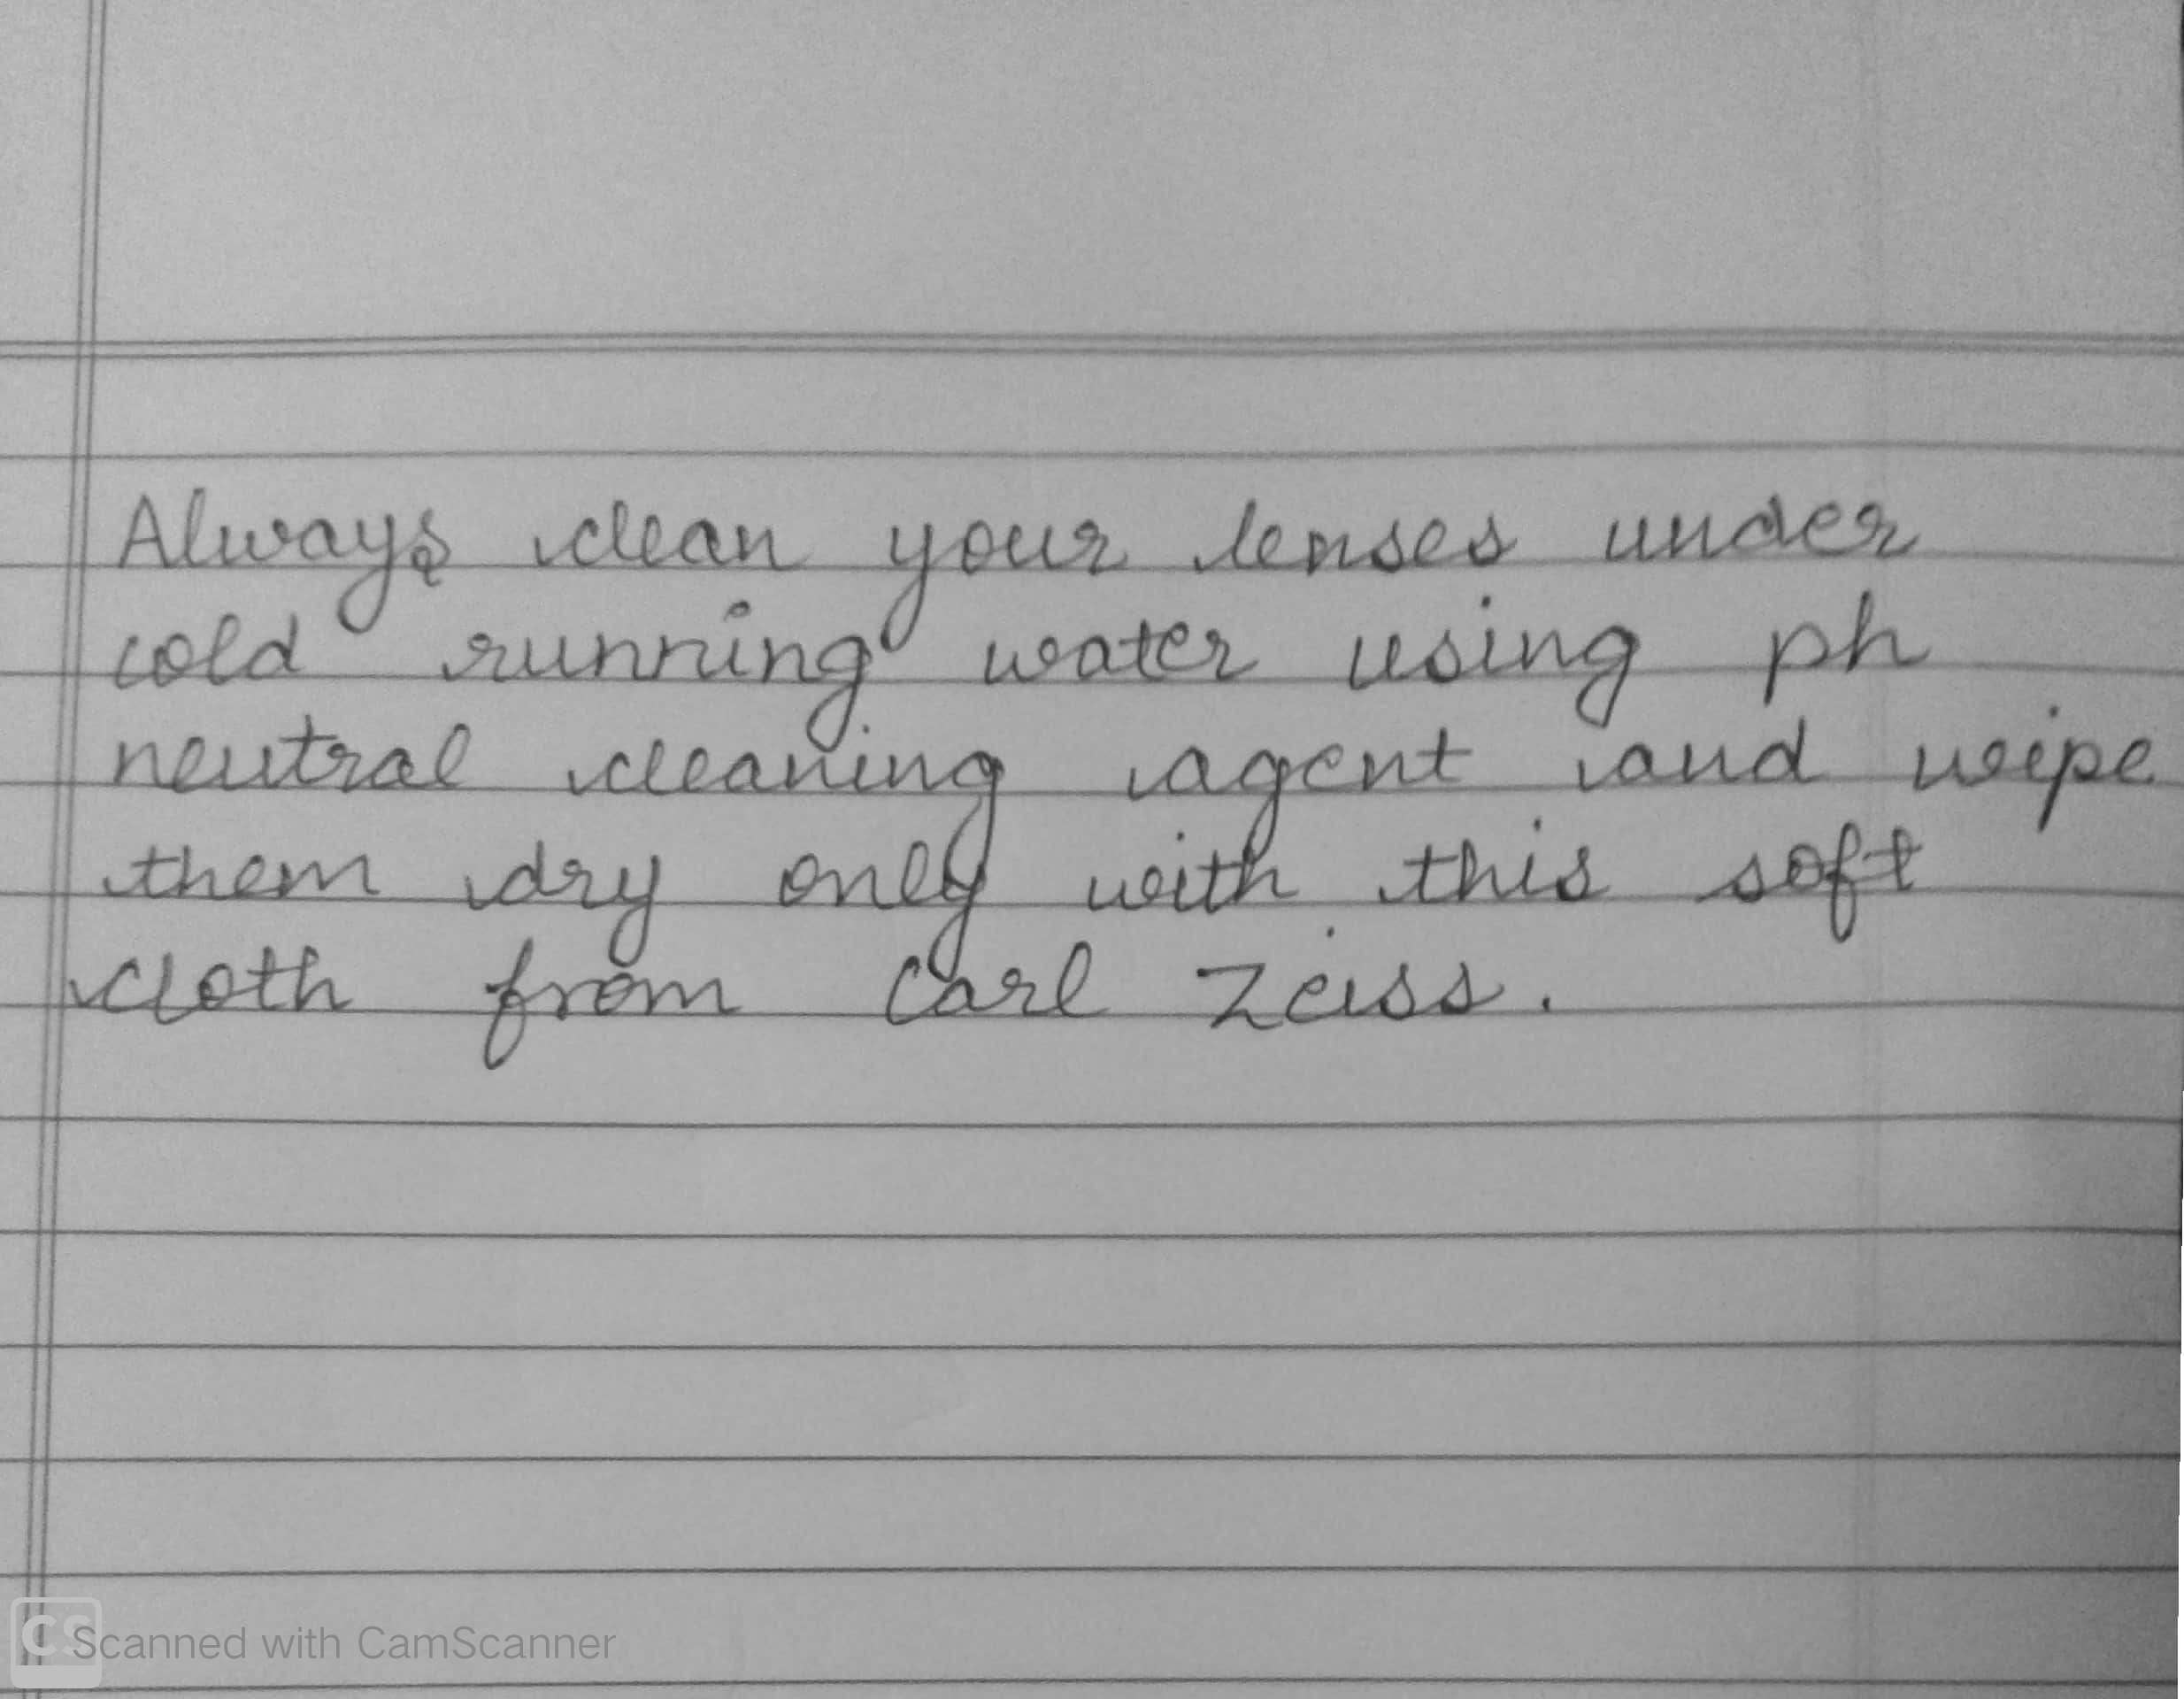 Always clean your lenses under
cold running water using ph
neutral cleaning agent and wipe
them dry only with this soft
cloth from Carl Zeiss.
CS Scanned with CamScanner